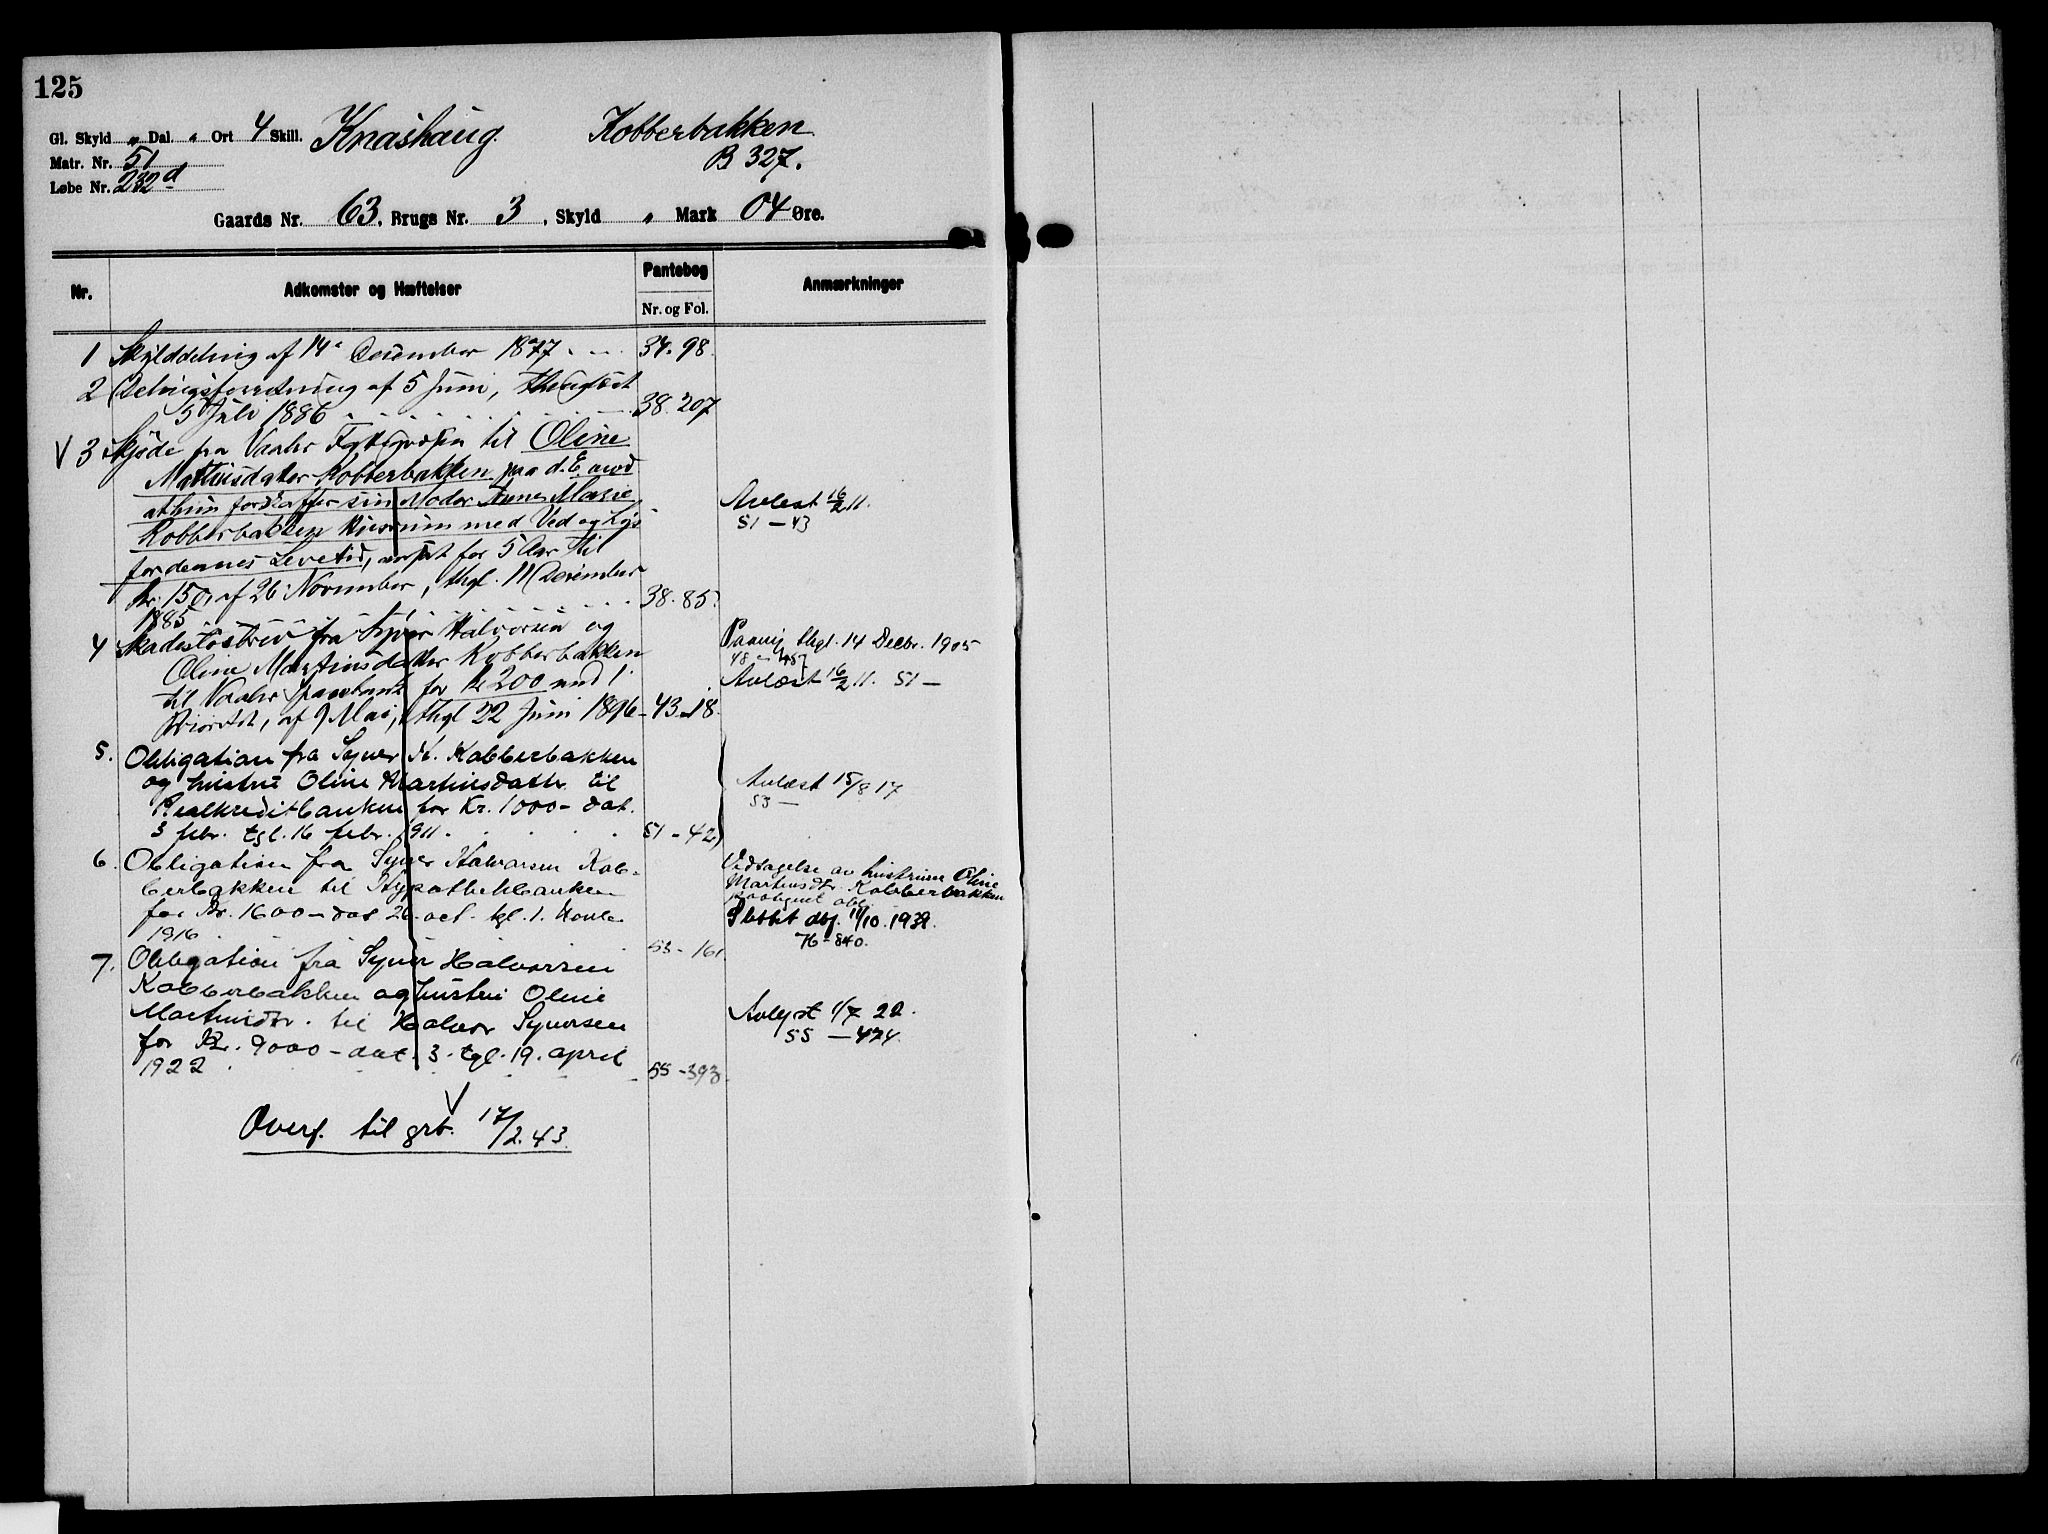 125
Gl. Skyld " Dal. " Ort 4 Skill. Knashaug. Kobberbakken
Matr. Nr. 51 B 327.
Løbe Nr. 232d
Gaards Nr. 63, Brugs Nr. 3, Skyld " Mark 04 Øre.
Nr. Adkomster og Hæftelser Pantebog Anmærkninger
Nr. og Fol.
1 Skylddeling af 14 December 1877 37. 98.
2 Delingsforretning af 5 Juni, thinglæst
5 Juli 1886 38. 207
V 3 Skjøde fra til Oline
Martinsdatter Kobberbakken paa d. E. mod
at hun forskaffer sin Moder Anne Marie
Kobberbakken Husrum med Ved og Lys
for dennes Levetid, for 5 Aar til
Kr. 150, af 26 November, thgl. 11 December
1885 38. 85.
Avlæst 16/2 11.
51 - 43
4 Skadesløsbrev fra Syver Halvorsen og
Oline Martinsdatter Kobberbakken
til Vaaler Sparebank for Kr 200 med 1.
Prioritet, af 9 Mai, thgl 22 Juni 1896 - 43 - 18.
thgl. 14 Decbr. 1905
Avlæst 16/2 11. 51 -
5. Obligation fra Syver H. Kobberbakken
og hustru Oline Martinsdatter til
Realkreditbanken for Kr. 1000 - dat.
3 febr. tgl. 16 febr. 1911. 51 - 42
Avlæst 15/8 17
53 -
6. Obligation fra Syver Halvorsen Kob-
berbakken til Hypothekbanken
for Kr. 1600 - dat 26. oct. tgl. 1. Novbr
1916 53 - 161
Vedtagelse av hustruen Oline
Martinsdtr. Kobberbakken
paategnet obl.
Slettet dbj. 11/10. 1939.
76 - 840.
7. Obligation fra Syver Halvorsen
Kobberbakken og hustru Oline
Martinsdtr. til Halvor Syversen
for Kr. 9000 - dat. 3. tgl. 19. april
1922 55 - 393.
Avlyst 1/7 22.
55 - 474.
V
Overf. til grb. 17/2. 43.